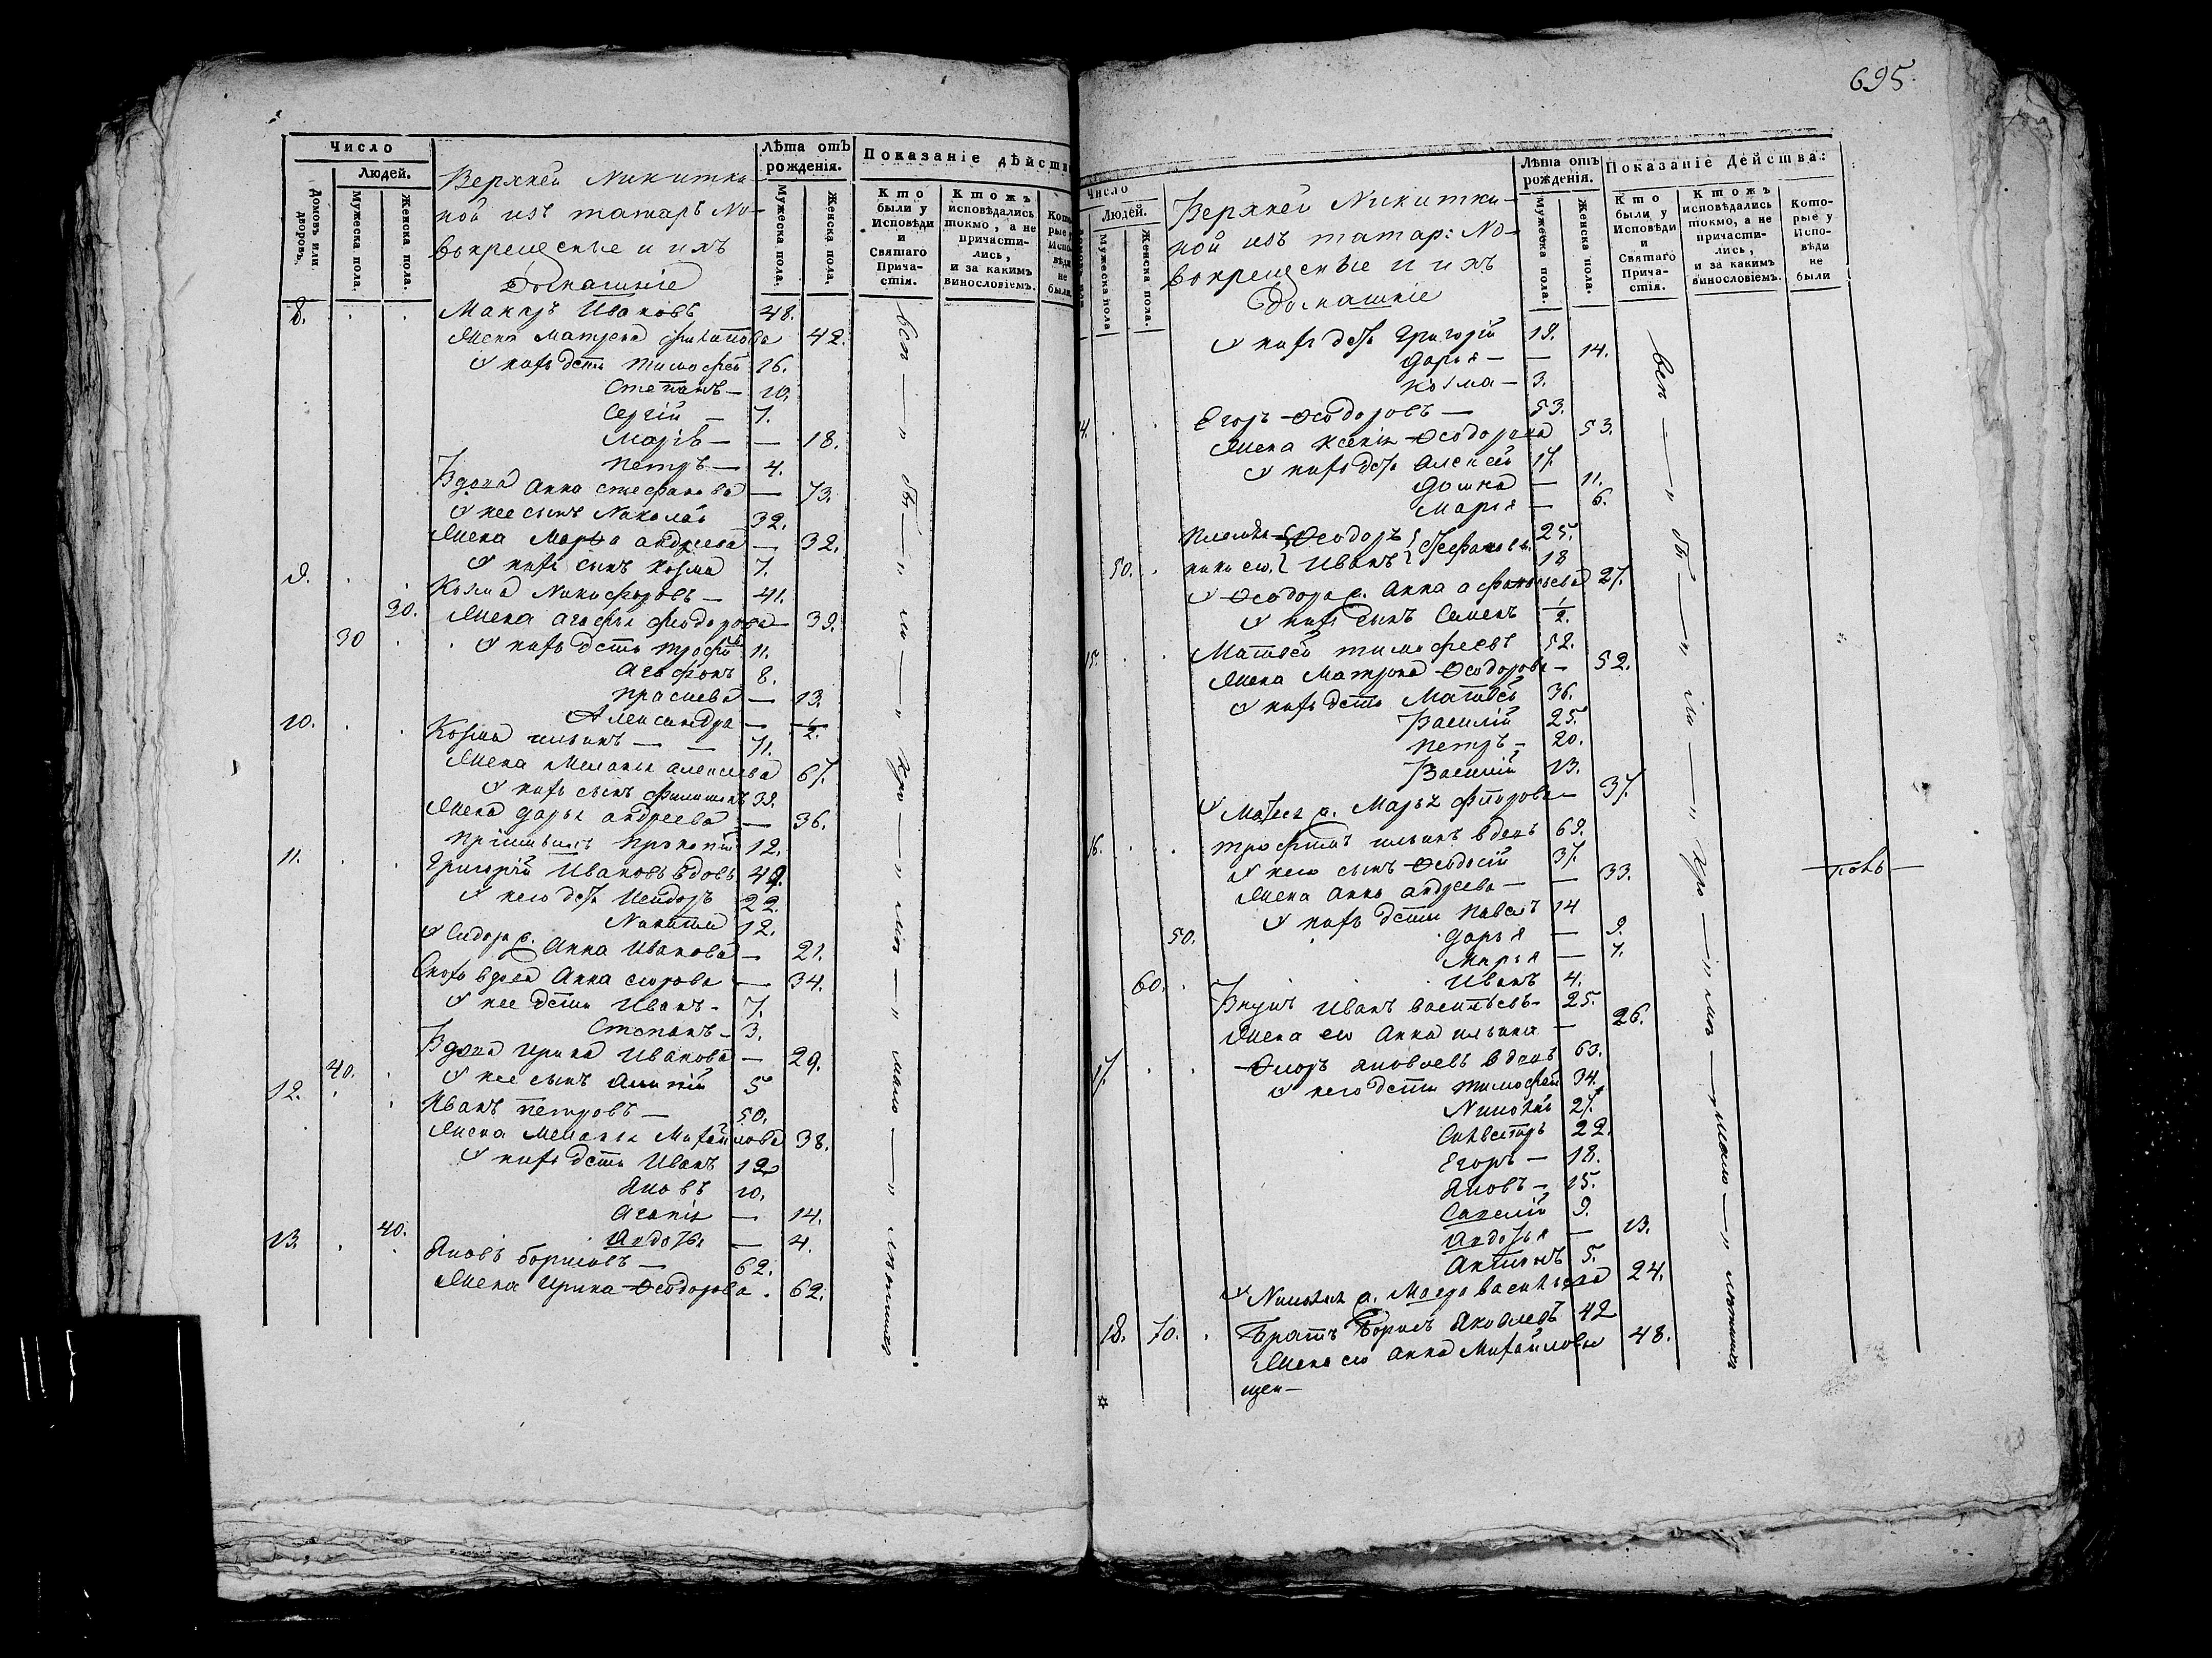 695.
Число
Людей.
Домовъ или дворовъ.
Мужеска пола.
Женска пола.
Верхней Никитки-
ной изъ татаръ Но-
вокрещеные и ихъ
Домашніе
Лѣта отъ рожденія.
Мужеска пола.
Женска пола.
Показаніе дѣйств
Кто были у Исповѣди и Святаго Причастія.
Ктожъ исповѣдались токмо, а не причастились, и за какимъ винословіемъ.
8. Макаръ Ивановъ 48.
Жена Матрена 42.
У нихъ дѣти Тимофей 16.
Степанъ — 10.
Сергій — 7.
Марія — — 18.
Петръ — 4.
Вдова Анна Стефанова — 73.
У нее сынъ Николай 32.
Жена Марфа Андреева — 32.
У нихъ сынъ Козма 7.
9. Козма Никифоровъ — 41.
30. Жена Агафья Феодорова 39.
30 У нихъ дѣти Трофимъ 11.
Агафонъ 8.
Праскева — 13.
Александра — 1/2.
10. Козма Ильинъ — — 71.
Жена Меланья Алексеева 67.
У нихъ сынъ Филимонъ 39.
Жена Дарья Андреева — 36.
Пріимышъ Прокопій 12.
11. Григорій Ивановъ вдовъ 49.
У него дѣти Исидоръ 22.
Никита 12.
У Сидора ж. Анна Иванова — 21.
Сноха вдова Анна Егорова — 34.
У нее дѣти Иванъ — 7.
Степанъ — 3.
Вдова Ирина Иванова — 29.
40. У нее сынъ 5
12. Иванъ Петровъ — 50.
Жена Меланья Михайлова 38.
У нихъ дѣти Иванъ 12
Яковъ 10.
Агапія — 14.
40. Авдотья — 4.
13. Яковъ Борисовъ — 62.
Жена Ирина Феодорова. 62.
Число
Людей.
Мужеска пола
Женска пола.
Верхней Никитки-
ной изъ татар: Но-
вокрещеные и ихъ
Домашніе
Лѣта отъ рожденія.
Мужеска пола.
Женска пола.
Показаніе Дѣйства:
Кто были у Исповѣди и Святаго Причастія.
Ктожъ исповѣдались токмо, а не причастились, и за какимъ винословіемъ.
Которые у Исповѣди не были
У нихъ дѣти Григорій 19.
Дарья — — 14.
Козма — 3.
14. Егоръ Феодоровъ — 53.
Жена Ксенія Феодорова 53.
У нихъ дѣти Алексей 17.
Домна — 11.
Марья — 6.
Племян- Феодоръ Стефановы. 25.
50. ники его. Иванъ 18
У Феодора ж. Анна Афанасьева 27.
У нихъ сынъ Семенъ 1/2.
15. Матвей Тимофеевъ 52.
Жена Матрона Феодорова — 52.
У нихъ дѣти Матвей 36.
Василій 25.
Петръ — 20.
Василій 13.
У Матвея ж. Марья — 37.
16. Трофимъ Ильинъ вдовъ 69.
У него сынъ Феодосій 37.
Жена Анна Андреева — — 33.
У нихъ дѣти Павелъ 14
50. Дарья — 9.
Марья — 7.
60. Иванъ 4.
Внукъ Иванъ Васильевъ — 25.
Жена его Анна Ильина — 26.
17. Яковлевъ вдовъ 63.
У него дѣти Тимофей 34.
Николай 27.
Силвестръ 22.
Егоръ — 18.
Яковъ — 15.
Савелій 9.
Авдотья — 13.
Антонъ 5.
У Николая ж. Васильева 24.
18. 70. Братъ Борисъ Яковлевъ 42
Жена его Анна Михайлова 48.